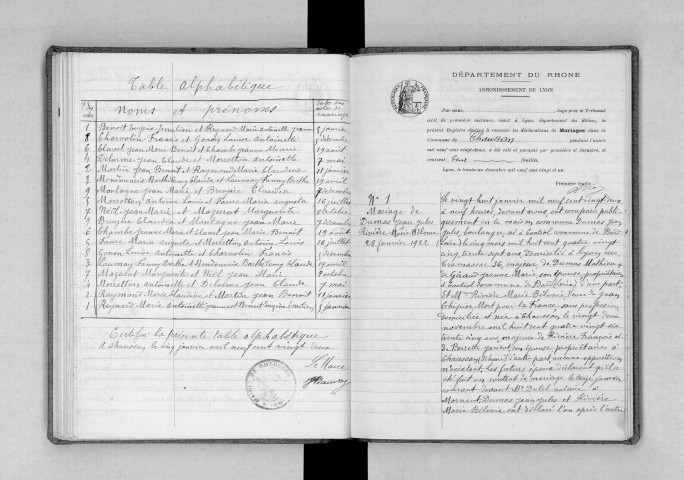 Table alphabétique
Noms et prénoms
1 Benoit Eugène Emilien et Reynard Marie Antoinette Jeanne 5 janvier
8 Charvolin Francis et Gonon Louise Antoinette 9 décembre
6 Clavel Jean Marie Benoit et Chambe Jeanne Marie 19 août
4 Delorme Jean Claude et Moretton Antoinette 7 mai
2 Martin Jean Benoit et Raymond Marie Claudine 11 janvier
3 Mondonneix Barthélemy Claude et Launay Fanny Berthe 19 avril
9 Montagne Jean Marie et Bruyère Claudia 7 décembre
5 Moretton Antoine Louis et Faure Marie Augusta 16 juillet
7 Néel Jean Marie et Mazurat Marguerite 8 octobre
9 Bruyère Claudia et Montagne Jean Marie 7 décembre
6 Chambe Jeanne Marie et Clavel Jean Marie Benoit 19 août
5 Faure Marie Augusta et Moretton Antoine Louis 16 juillet
8 Gonon Louise Antoinette et Charvolin Francis 9 décembre
3 Launay Fanny Berthe et Mondonneix Barthélemy Claude 19 avril
7 Mazurat Marguerite et Néel Jean Marie 8 octobre
4 Moretton Antoinette et Delorme Jean Claude 7 mai
2 Raymond Marie Claudine et Martin Jean Benoit 11 janvier
1 Reynard Marie Antoinette Jeanne et Benoit Eugène Emilien 5 janvier
Certifié la présente table alphabétique
à Chaussan, le cinq janvier mil neuf cent vingt deux
Le Maire
DÉPARTEMENT DU RHONE
ARRONDISSEMENT DE LYON
Par nous, Juge près le Tribunal
civil de première instance, séant à Lyon, département du Rhône, le
présent Registre destiné à recevoir les déclarations de Mariages dans la
Commune de Chaussan pendant l'année
mil neuf cent vingt-deux, a été coté et paraphé par première et dernière, et
contient feuilles
Lyon, le trente-un décembre mil neuf cent vingt et un.
Première feuille
N° 1
Mariage de
Dumas Jean Jules
Rivière Marie Bélonie
28 janvier 1922
Le vingt huit janvier mil neuf cent vingt deux
à neuf heures devant nous ont comparu publi-
quement en la maison commune Dumas Jean
Jules, boulanger, né à commune de
Loire le cinq mars mil huit cent quatre vingt
cinq, trente sept ans, domicilié à Lyon rue
36, majeur de Dumas Mathieu
de Gérard Jeanne Marie, son épouse, propriétaires
à commune de (Loire) d'une part,
Et Mme Rivière Marie Bélonie, veuve de Jean
Mort pour la France, sans profession
domiciliée et née à Chaussan le vingt deux
novembre mil huit cent quatre vingt six
trente cinq ans, majeure de Rivière François et
de son épouse, propriétaires à
Chaussan, Rhône, d'autre part, aucune opposition
n'existant. Les futurs époux déclarent qu'il a
été fait un contrat de mariage le onze janvier
courant devant Me notaire à
Mornant. Dumas Jean Jules et Rivière
Marie Bélonie ont déclaré l'un après l'autre